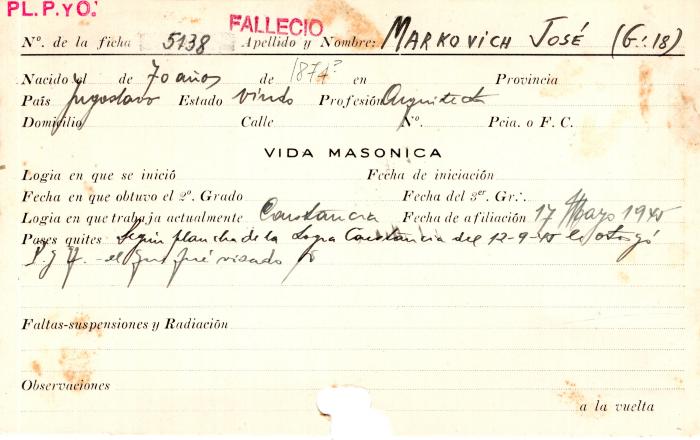 PL.P.yO:
FALLECIO
Nº. de la ficha 5138 Apellido y Nombre: MARKOVICH JOSÉ (G∴18)
Nacido el de 70 años de 1874? en Provincia
País Jugoslavo Estado viudo Profesión Arquitecto
Domicilio Calle Nº. Pcia. o F. C.
VIDA MASONICA
Logia en que se inició Fecha de iniciación
Fecha en que obtuvo el 2º. Grado Fecha del 3er. Gr∴
Logia en que trabaja actualmente Constancia Fecha de afiliación 17 Mayo 1945
Pases quites Según plancha de la Logia Constancia del 12-9-45 le otorgó
- el que fué visado
Faltas-suspensiones y Radiación
Observaciones
a la vuelta